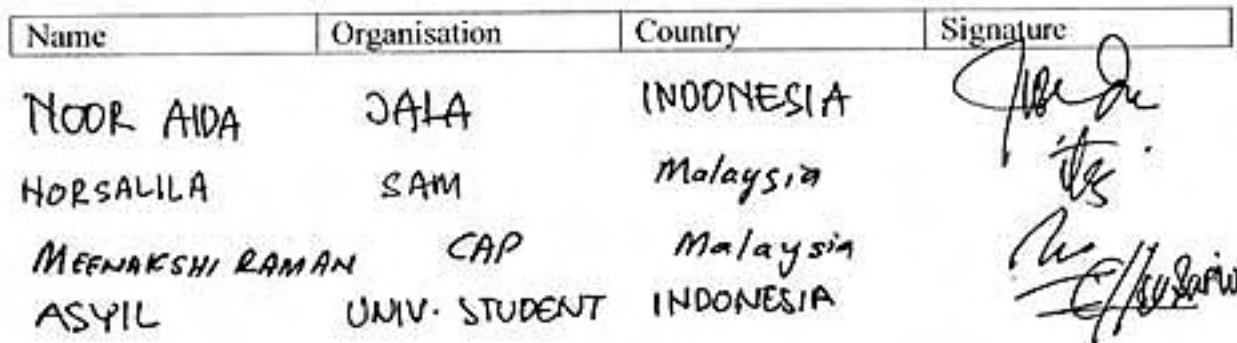 Name Organisation Country Signature
NOOR AIDA JALA INDONESIA
NORSALILA SAM Malaysia
MEENAKSHI RAMAN CAP Malaysia
ASYIL UNIV. STUDENT INDONESIA